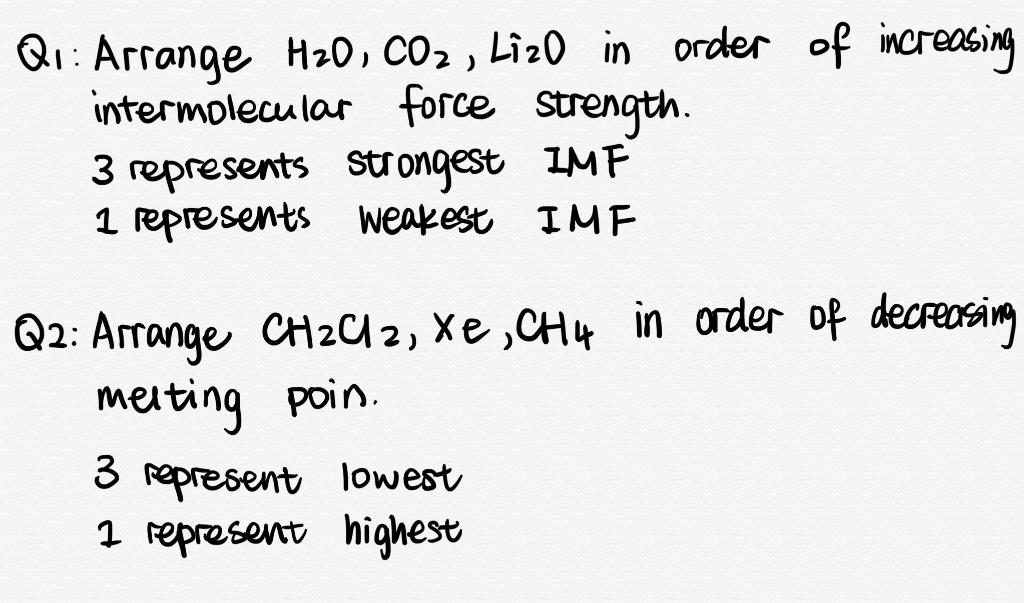 Q1: Arrange H2O, CO2, Li2O in order of increasing
intermolecular force strength.
3 represents strongest IMF
1 represents weakest IMF
Q2: Arrange CH2Cl2, Xe, CH4 in order of decreasing
melting poin.
3 represent lowest
1 represent highest